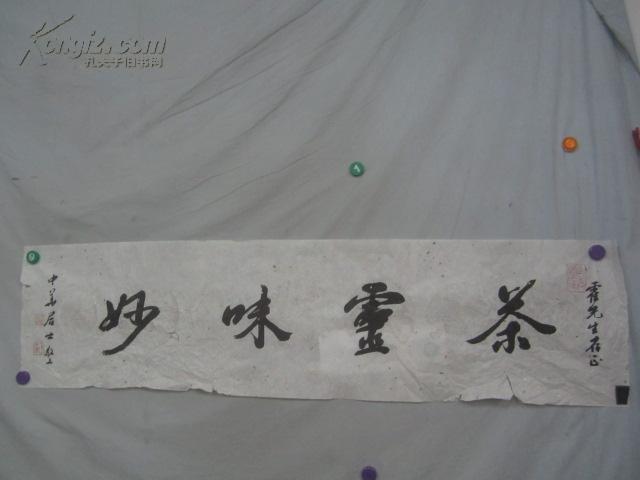 Kongfz.com
孔夫子旧书网
霍先生存正
茶靈味妙
中華居士敬